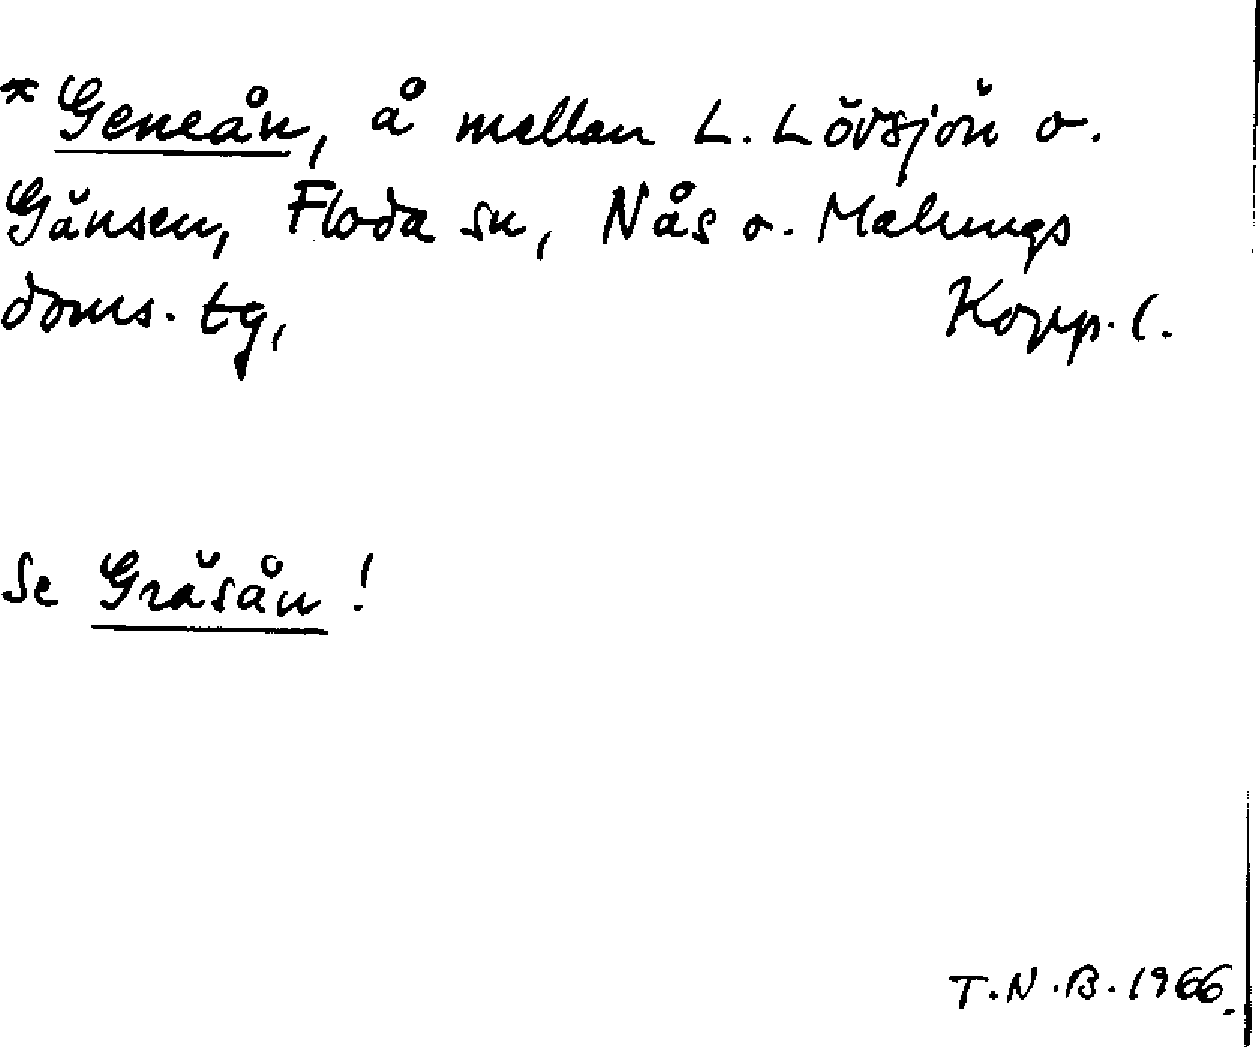 * Geneån, å mellan L. Lövsjön o.
Gänsen, Floda sn, Nås o. Malungs
doms. tg, Kopp. l.
Se Gräsån!
T.N.B. 1966.